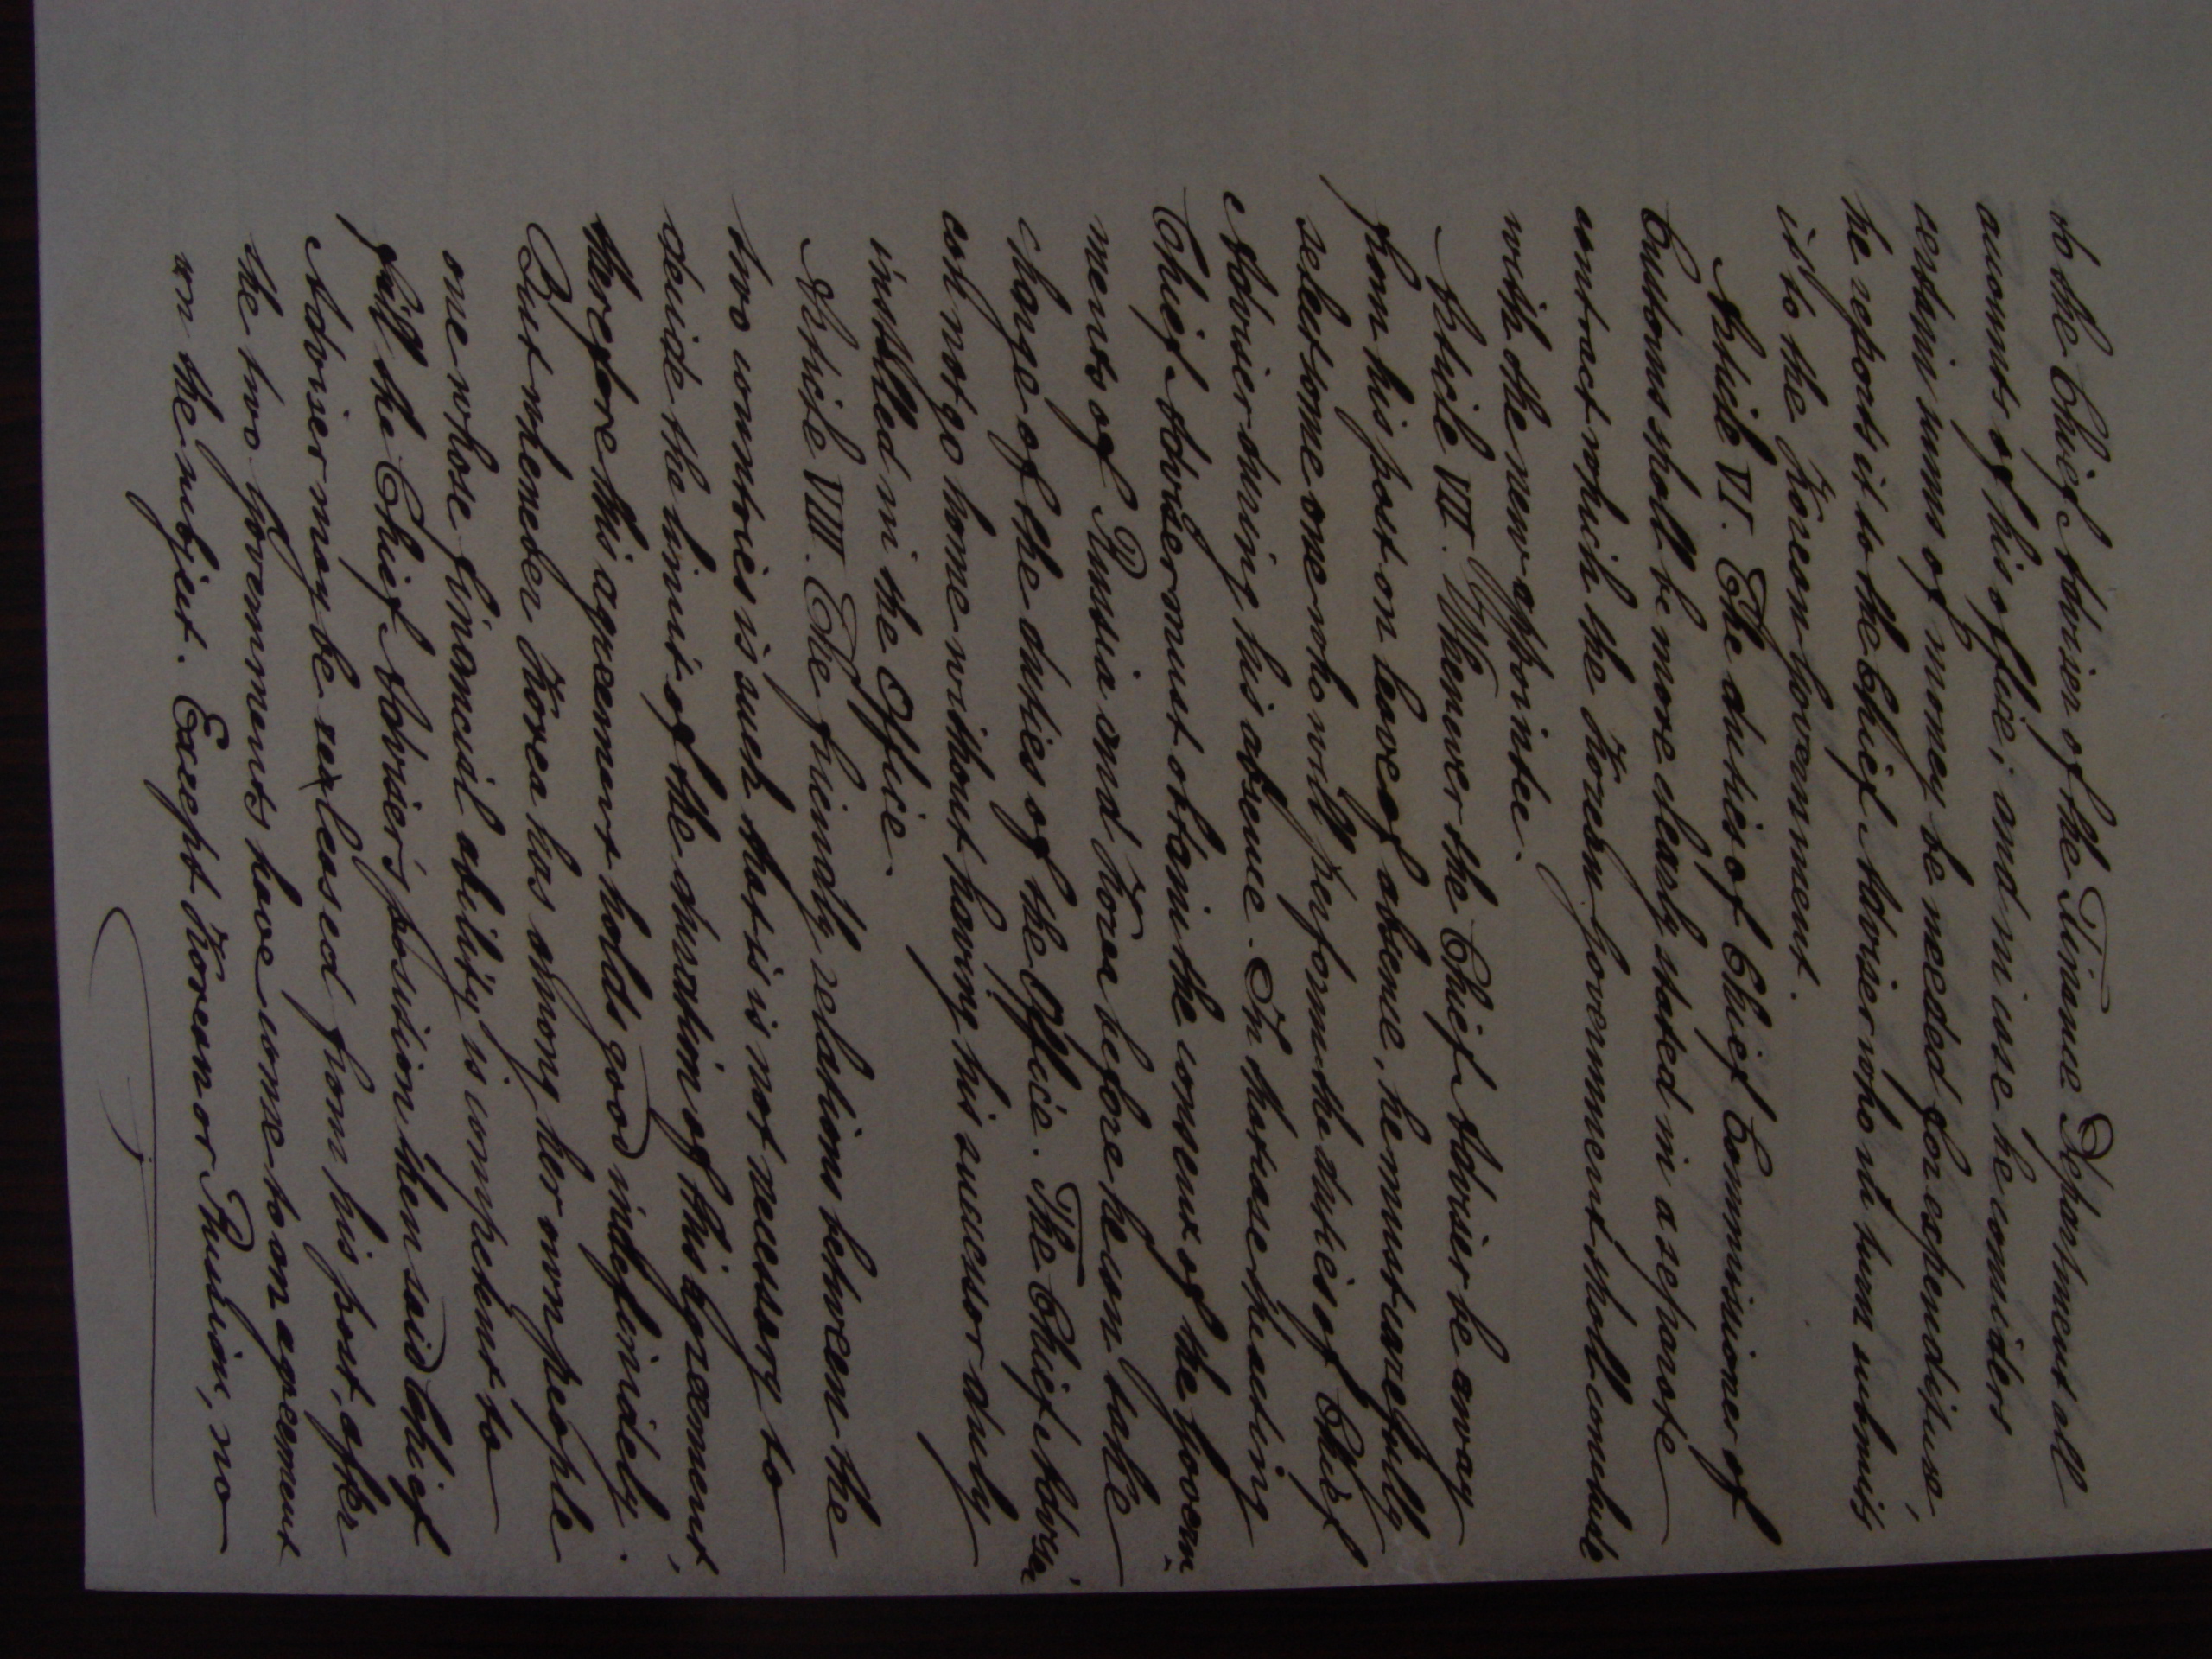 to the Chief Adviser of the Finance Department all
accounts of his office; and in case he considers
certain sums of money be needed for expenditure,
he reports it to the Chief Adviser who in turn submits
it to the Korean Government.
Article VI. The duties of Chief Commissioner of
Customs shall be more clearly stated in a separate
contract which the Korean Government shall conclude
with the new appointee.
Article VII. Whenever the Chief Adviser be away
from his post on leave of absence, he must carefully
select some one who will perform the duties of Chief
Adviser during his absence. In that case the acting
Chief Adviser must obtain the consent of the Govern-
ments of Russia and Korea before he can take
charge of the duties of the Office. The Chief Adviser
can not go home without having his successor duly
installed in the Office.
Article VIII. The friendly relations between the
two countries is such that it is not necessary to
decide the limit of the duration of this Agreement,
therefore this agreement holds good indefinidely.
But whenever Korea has among her own people
one whose financial ability is competent to
fill the Chief Adviser's position then said Chief
Adviser may be released from his post, after
the two Governments have come to an agreement
on the subject. Except Korean or Russian, no